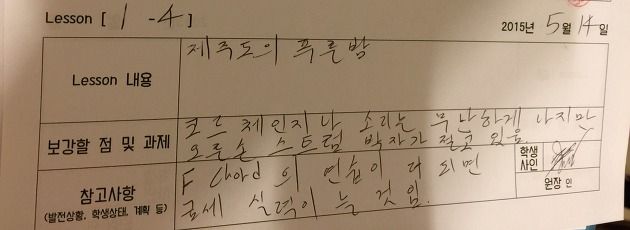 Lesson [ 1 -4 ] 2015년 5월 14일
Lesson 내용
제주도의 푸른밤
보강할 점 및 과제
코드 체인지나 소리는 무난하게 나지만
오른손 스트럼 박자가 절고 있음.
학생
사인
참고사항
(발전상황, 학생상태, 계획 등)
F Chord 의 연습이 더 되면
금세 실력이 늘 것임.
원장 인